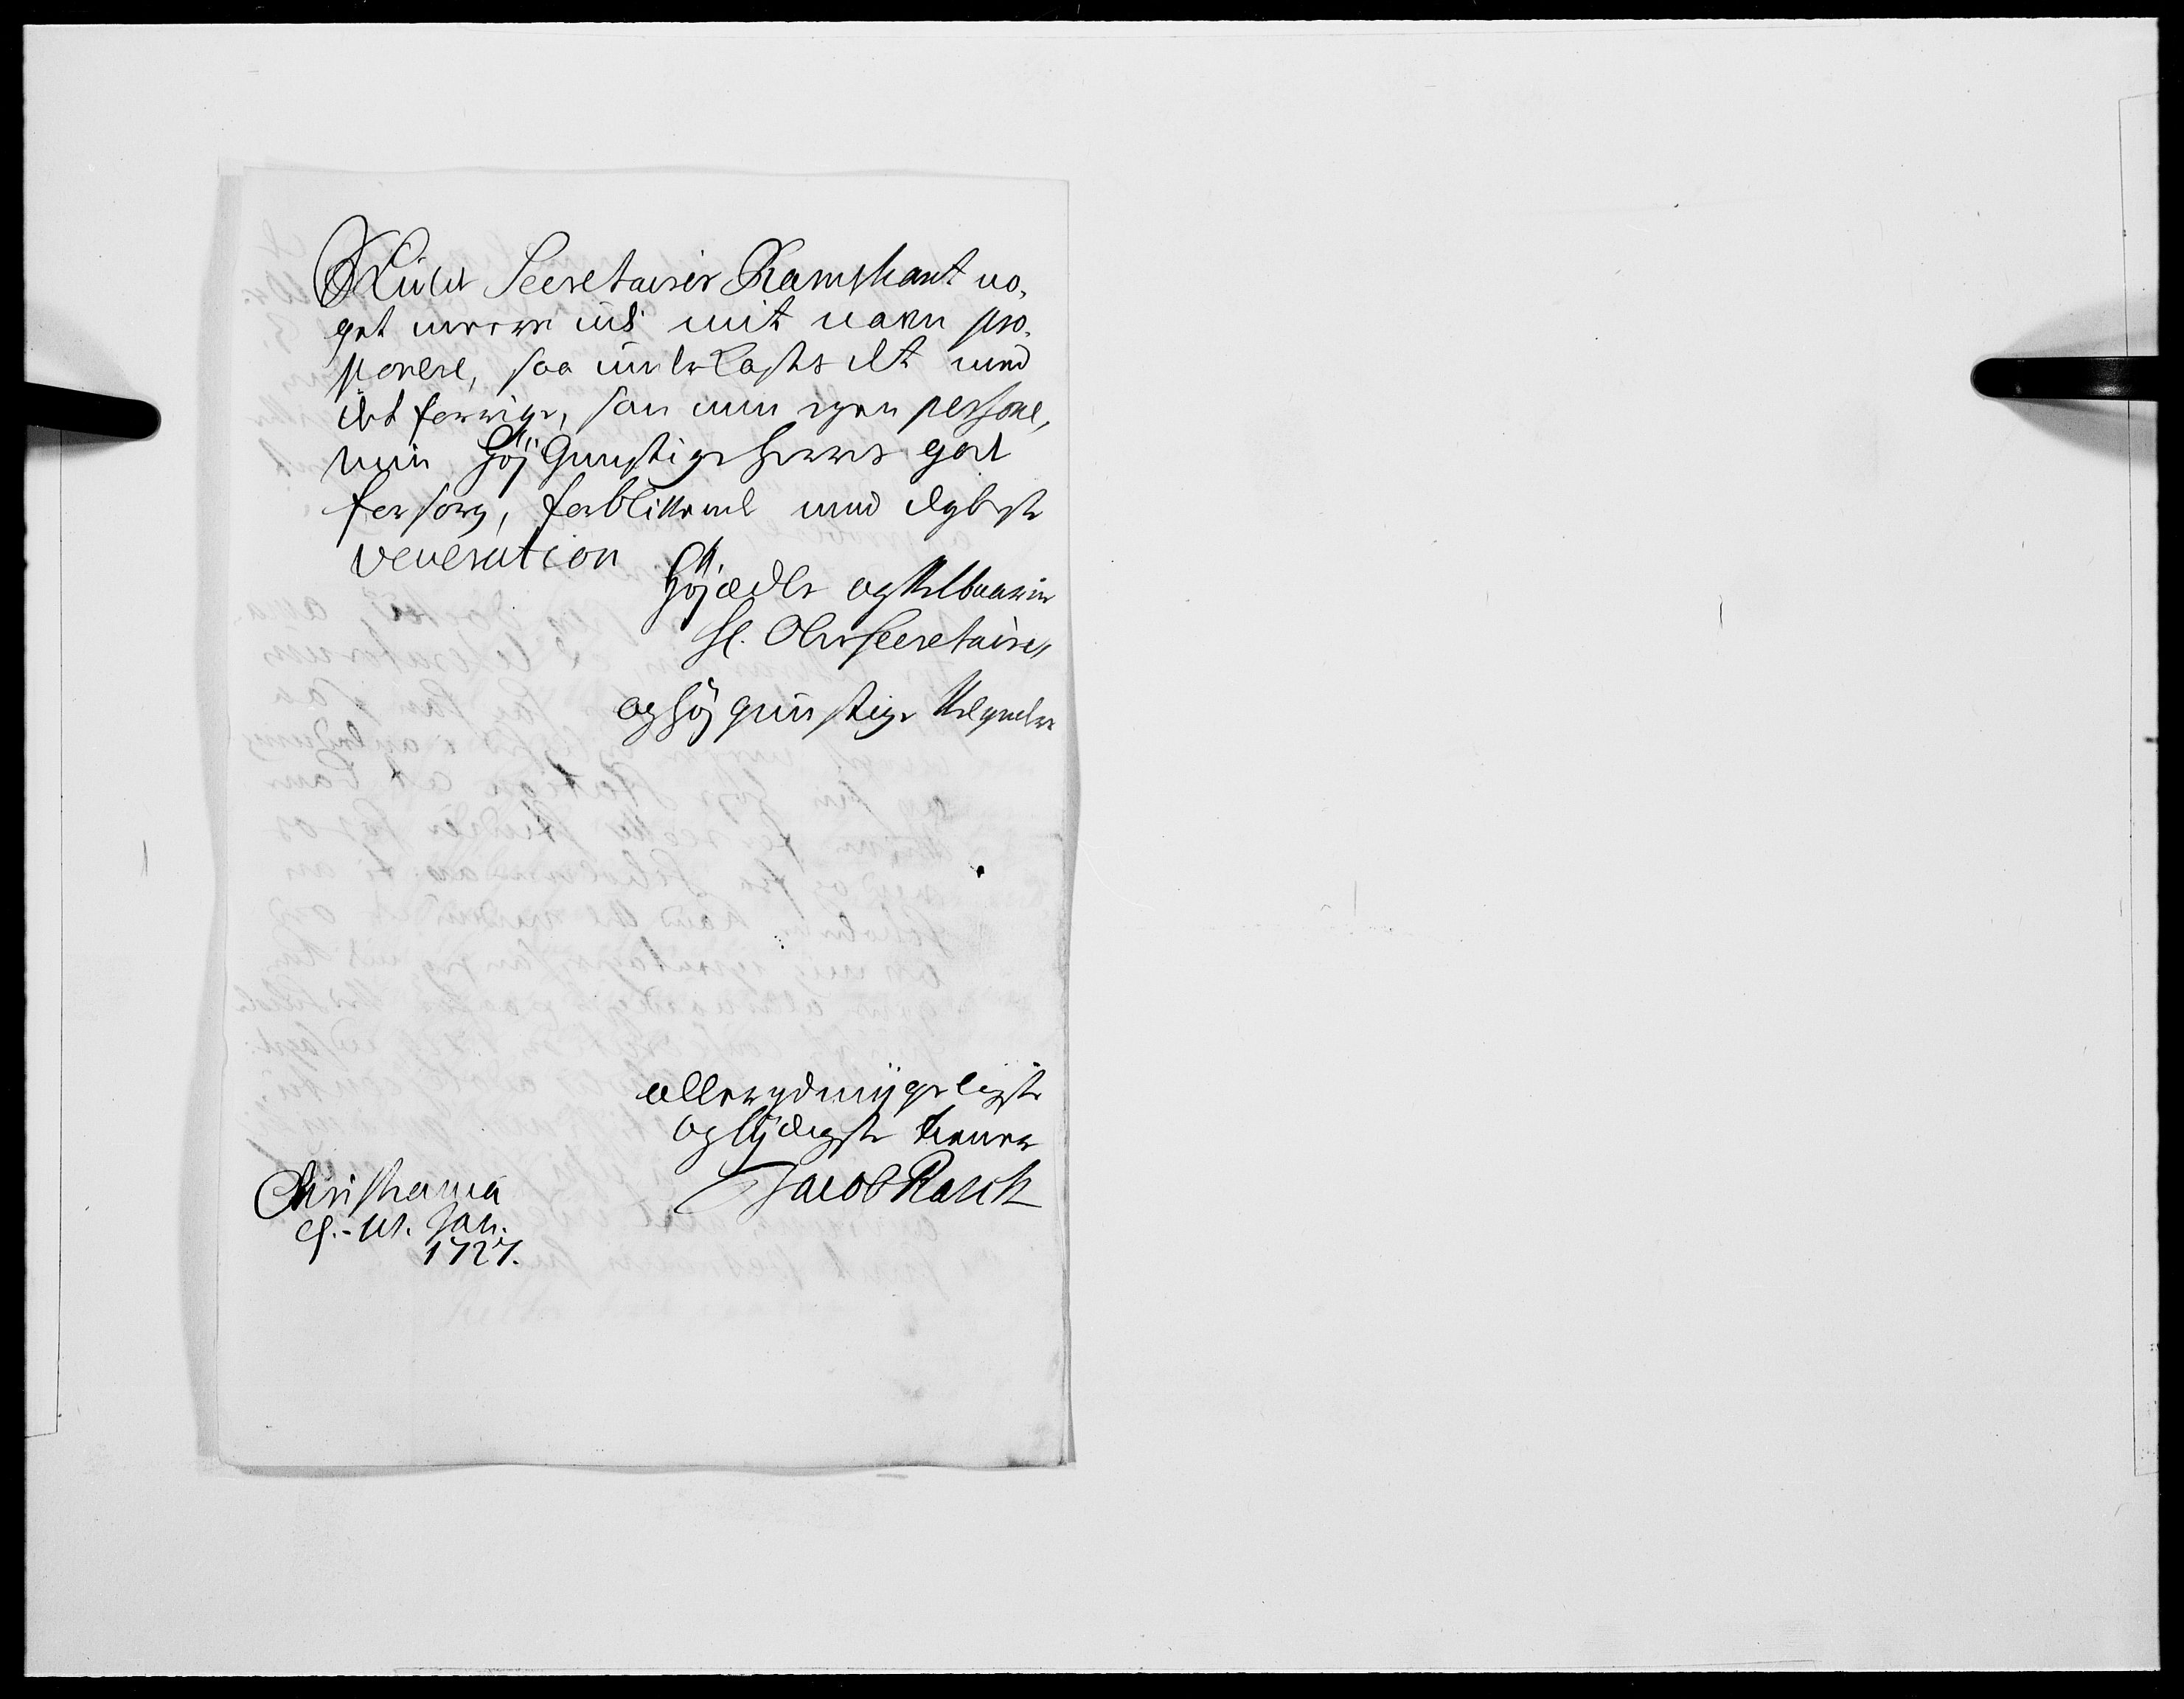 Skulde Secretairer Ramshart no¬
get mere udi mit nafn pro¬
ponere, saa underkastes det med
det forrige, som min egen persone,
min Høj Gunstige Herres god
forsorg, forblifvend med dybeste
veneration
Højædle og Velbaarne
Hr. Ober Secretaires
og høj gunstige Velynders
allerydmygeligste
og lydigste tienere
Jacob Rasch
Christiania
d. Jan.
1727.